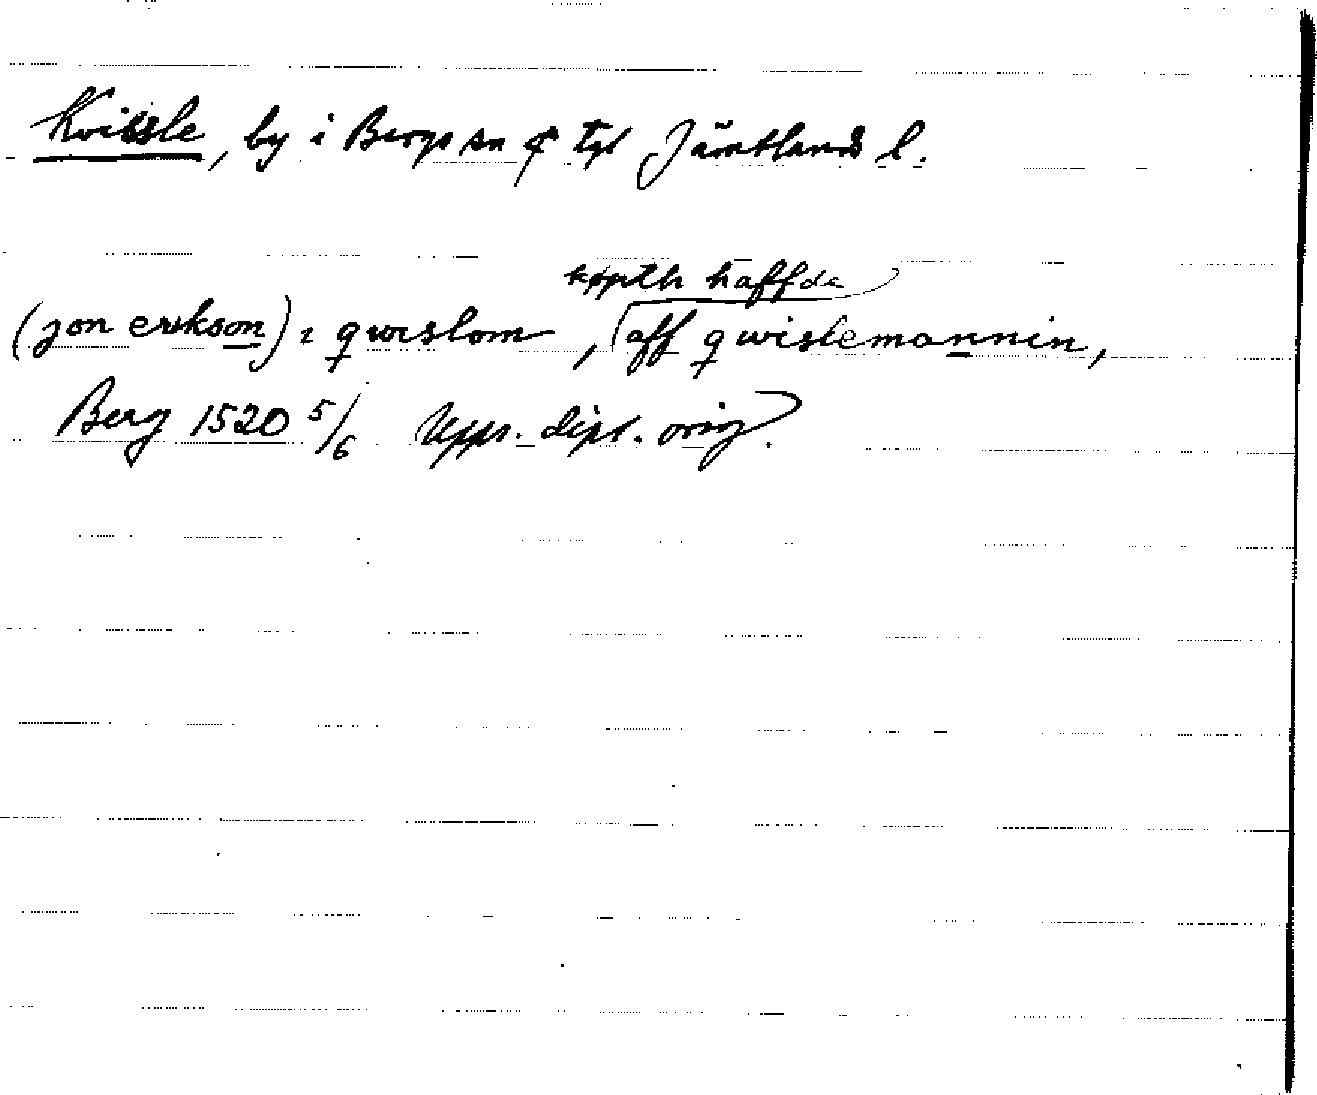 Kvissle, by i Bergs sn & tgl Jämtlands l.
køpth haffde
(jon erikson) i qwislom, aff qwislemannin,
Berg 1520 5/6 Upps. dipl. orig.